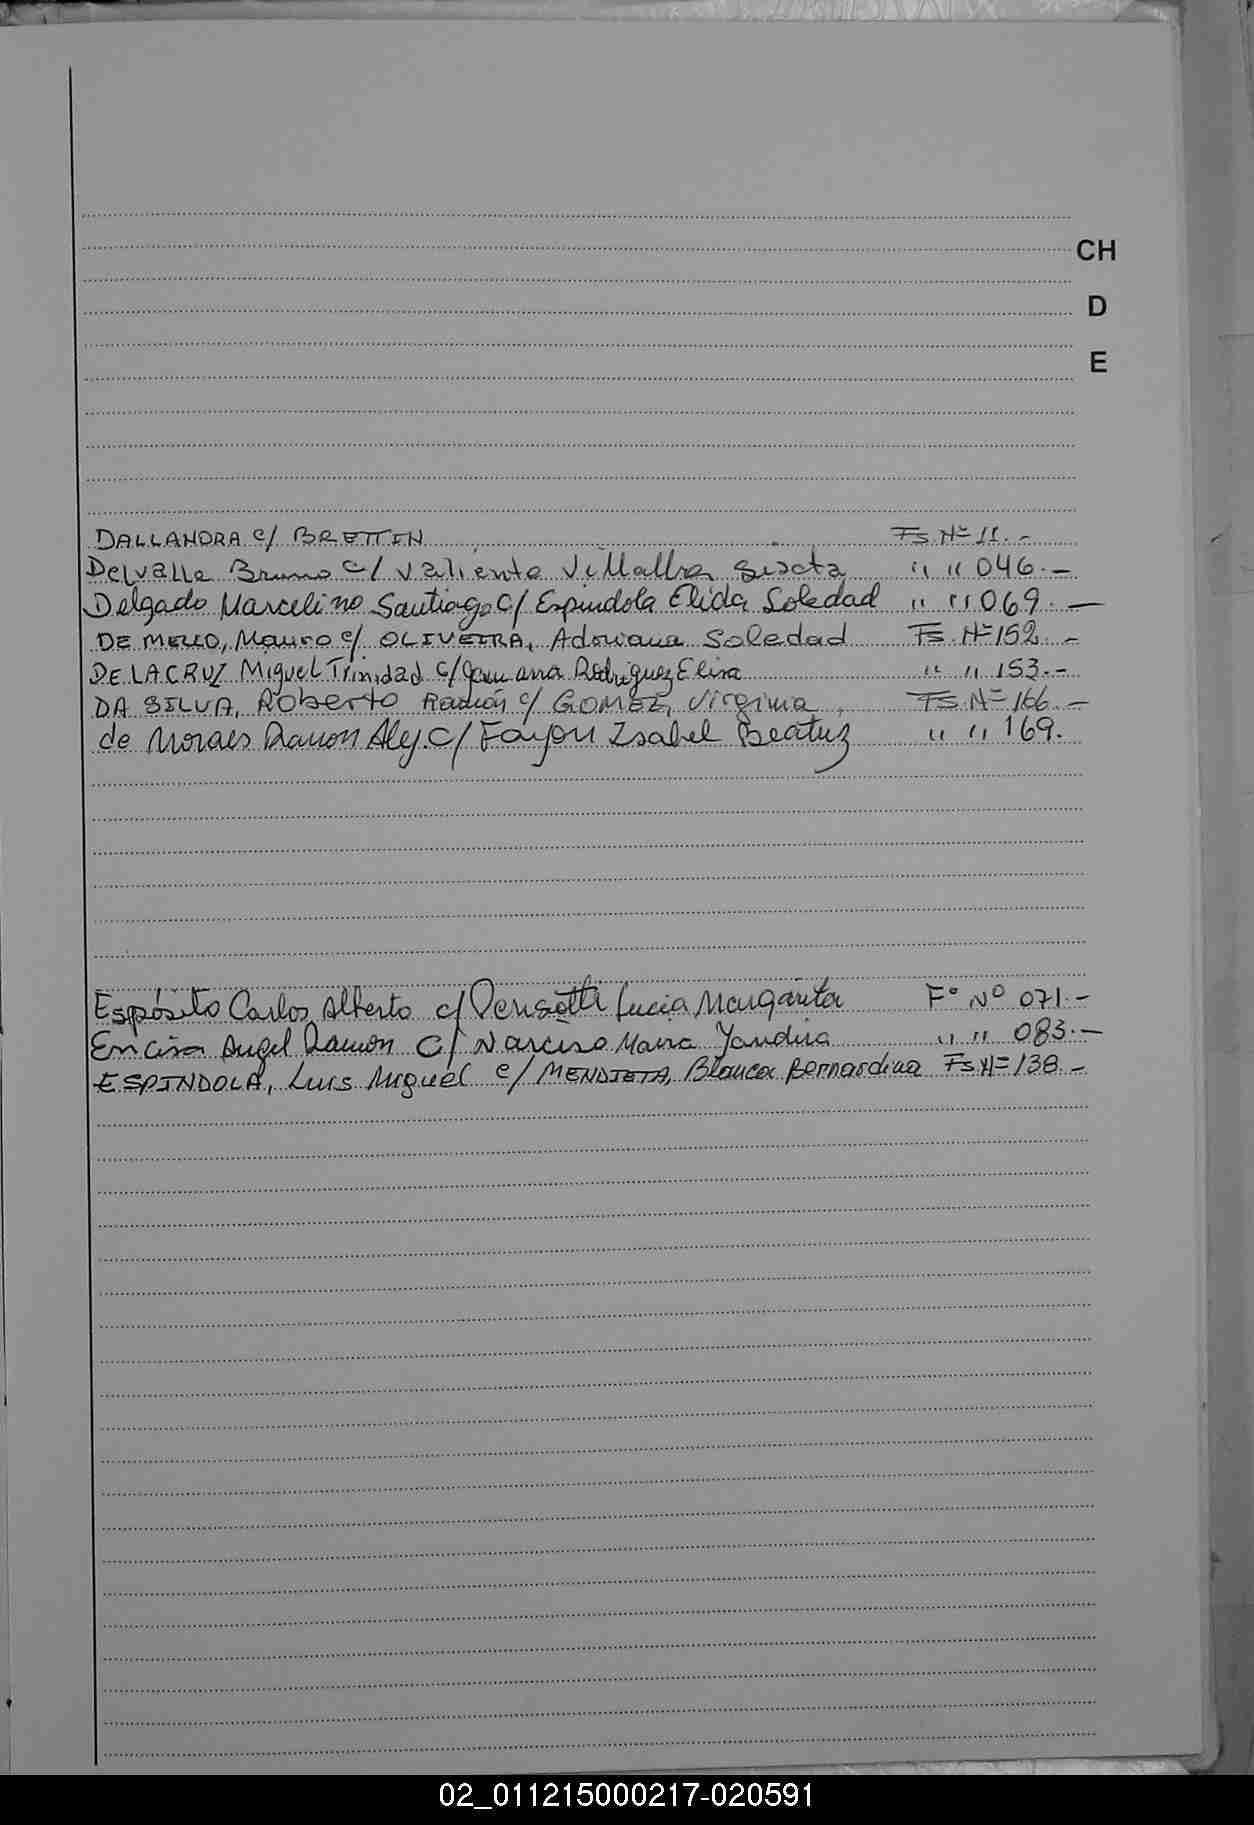 CH
D
E
DALLANORA c/ BRETTIN Fs. Nº 11.-
Delvalle Bruno c/ Valiente Villalba Sixta " " 046.-
Delgado Marcelino Santiago c/ Espindola Elida Soledad " " 069.-
DE MELLO, Mauro c/ OLIVEIRA, Adriana Soledad Fs. Nº 152.-
DE LA CRUZ Miguel Trinidad c/ Rodriguez Elisa " " 153.-
DA SILVA, Roberto Ramón c/ GOMEZ, Virginia. Fs. Nº 166.-
de Moraes Ramon Aly. c/ Isabel Beatriz " " 169.
Espósito Carlos Alberto c/ Pensotti Lucia Margarita Fº Nº 071.-
Encina Angel Ramon c/ Narciso Maria Yandira " " 083.-
ESPINDOLA, Luis Miguel c/ MENDIETA, Blanca Bernardina Fs Nº 138.-
02_011215000217-020591